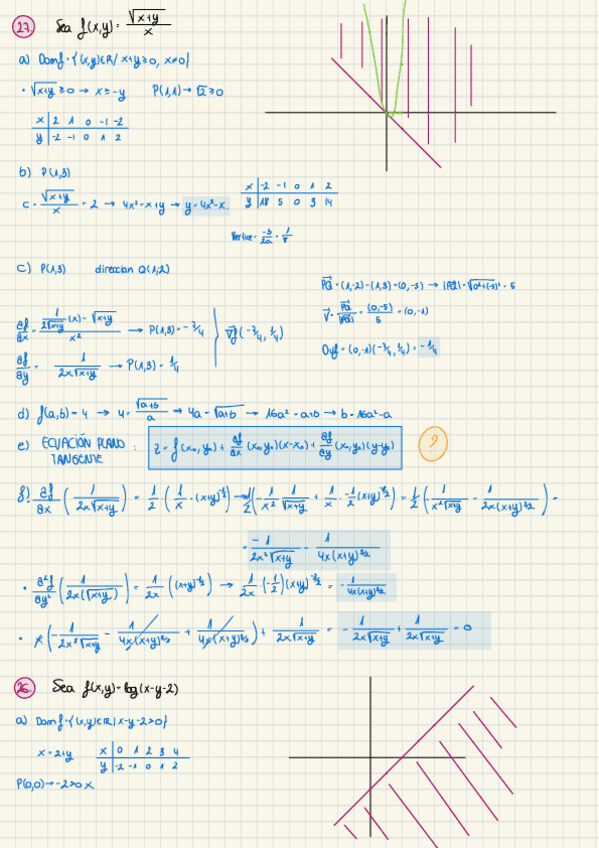 27. Sea f(x,y) = √(x+y) / x
a) Domf = {(x,y)∈R / x+y ≥ 0, x≠0}
• √(x+y) ≥ 0 → x ≥ -y P(1,1) → √2 ≥ 0
x | 2 1 0 -1 -2
y | -2 -1 0 1 2
b) P(1,3)
c = √(x+y) / x = 2 → 4x² = x+y → y = 4x²-x.
x | -2 -1 0 1 2
y | 18 5 0 3 14
Vertice = -b/2a = 1/8
c) P(1,3) direccion Q(1,-2)
PQ = (1,-2)-(1,3) = (0,-5) → |PQ| = √(0²+(-5)²) = 5
V = PQ/|PQ| = (0,-5)/5 = (0,-1)
∂f/∂x = (1/(2√(x+y)) (x) - √(x+y)) / x² → P(1,3) = -7/4
∇f (-7/4, 1/4)
∂f/∂y = 1/(2x√(x+y)) → P(1,3) = 1/4
Duf = (0,-1)(-7/4, 1/4) = -1/4
d) f(a,b) = 4 → 4 = √(a+b) / a → 4a = √(a+b) → 16a² = a+b → b = 16a²-a
e) ECUACIÓN PLANO TANGENTE : z = f(x₀,y₀) + ∂f/∂x (x₀,y₀)(x-x₀) + ∂f/∂y (x₀,y₀)(y-y₀) ?
f) ∂f/∂x (1/(2x√(x+y))) = 1/2 (1/x · (x+y)^(-1/2)) → 1/2 (-1/x² 1/√(x+y) + 1/x · -1/2 (x+y)^(-3/2)) = 1/2 (-1/(x²√(x+y)) - 1/(2x(x+y)^(3/2))) =
= -1/(2x²√(x+y)) - 1/(4x(x+y)^(3/2))
• ∂²f/∂y² (1/(2x(√(x+y)))) = 1/2x ((x+y)^(-1/2)) → 1/2x · (-1/2)(x+y)^(-3/2) = -1/(4x(x+y)^(3/2))
• x (-1/(2x²√(x+y)) - 1/(4x(x+y)^(3/2)) + 1/(4x(x+y)^(3/2))) + 1/(2x√(x+y)) = -1/(2x√(x+y)) + 1/(2x√(x+y)) = 0
26. Sea f(x,y) = log(x-y-2)
a) Domf = {(x,y)∈R | x-y-2>0}
x = 2+y
x | 0 1 2 3 4
y | -2 -1 0 1 2
P(0,0) → -2>0 x